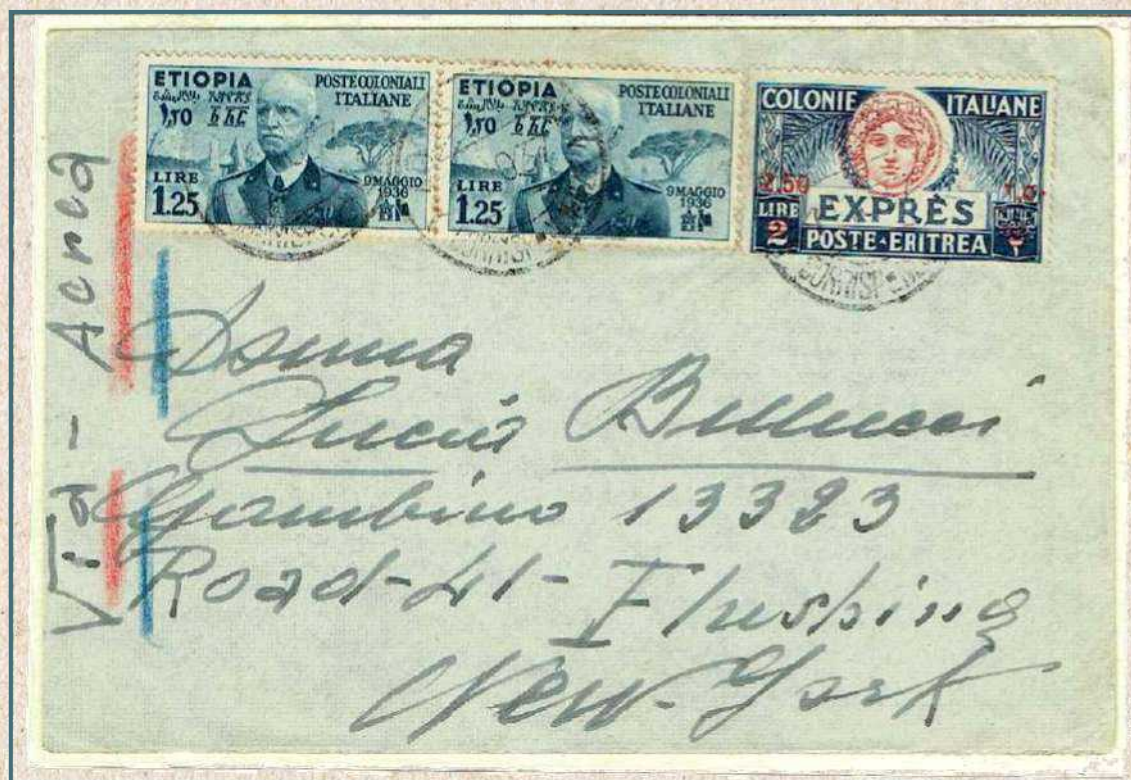 ETIOPIA
POSTE COLONIALI
ITALIANE
LIRE
1.25
9 MAGGIO
1936
ETIOPIA
POSTE COLONIALI
ITALIANE
LIRE
1.25
9 MAGGIO
1936
COLONIE ITALIANE
2.50
LIRE
2
EXPRÈS
POSTE·ERITREA
Via - Aerea
Lucia Bellucci
Gambino 13323
Road-41- Flushing
New-York